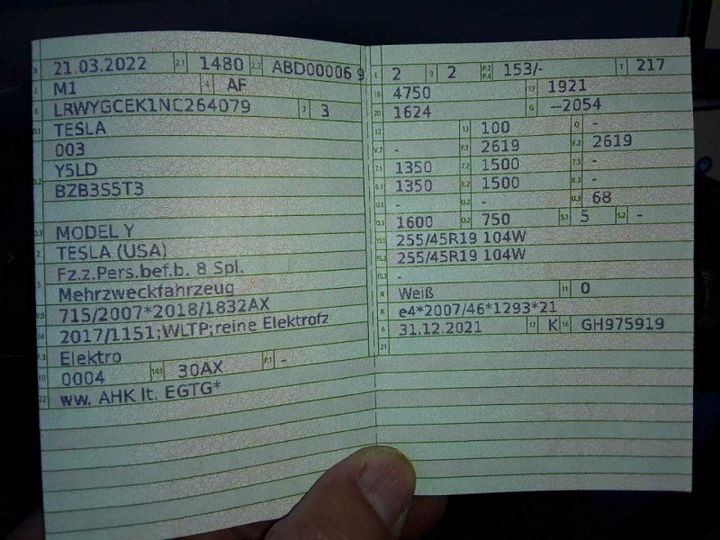 B 21.03.2022 2.1 1480 2.2 ABD00006 9
J M1 4 AF
E LRWYGCEK1NC264079 3 3
D.1 TESLA
003
D.2 Y5LD
BZB3S5T3
D.3 MODEL Y
2 TESLA (USA)
5 Fz.z.Pers.bef.b. 8 Spl.
Mehrzweckfahrzeug
V.9 715/2007*2018/1832AX
14 2017/1151;WLTP;reine Elektrofz
P.3 Elektro
10 0004 14.1 30AX P.1 -
22 ww. AHK lt. EGTG*
L 2 9 2 P.2 P.4 153/- T 217
18 4750 19 1921
20 1624 G --2054
12 - 13 100 Q -
V.7 - F.1 2619 F.2 2619
7.1 1350 7.2 1500 7.3 -
8.1 1350 8.2 1500 8.3 -
U.1 - U.2 - U.3 68
O.1 1600 O.2 750 S.1 5 S.2 -
15.1 255/45R19 104W
15.2 255/45R19 104W
15.3 -
R Weiß 11 0
K e4*2007/46*1293*21
6 31.12.2021 17 K 16 GH975919
21